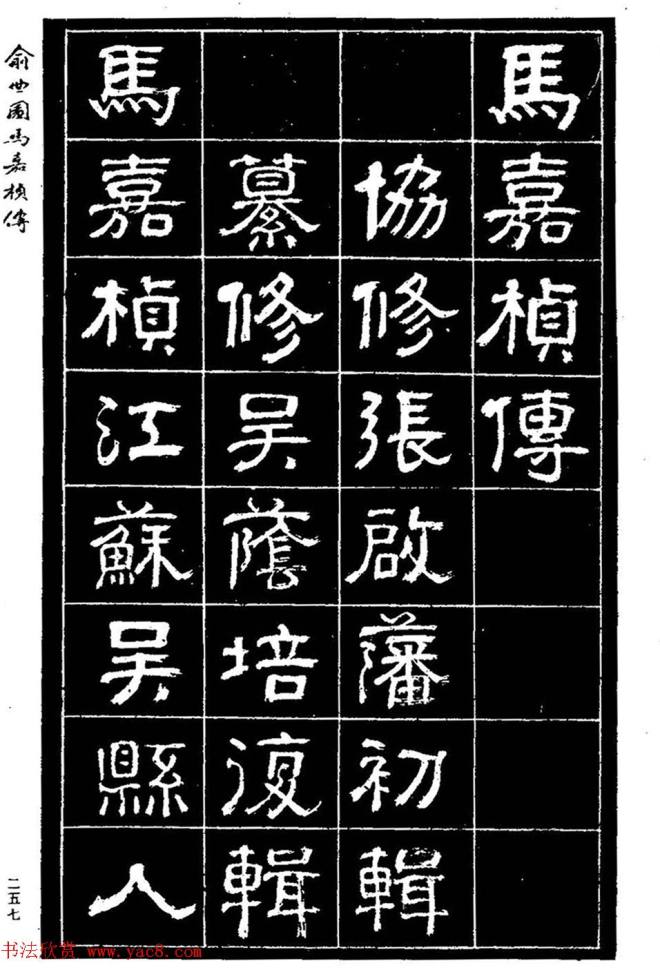 馬嘉楨傳
協修張啟藩初輯
纂修吳蔭培復輯
馬嘉楨江蘇吳縣人
俞世圃馬嘉楨傳
二五七
书法欣赏 www.yac8.com